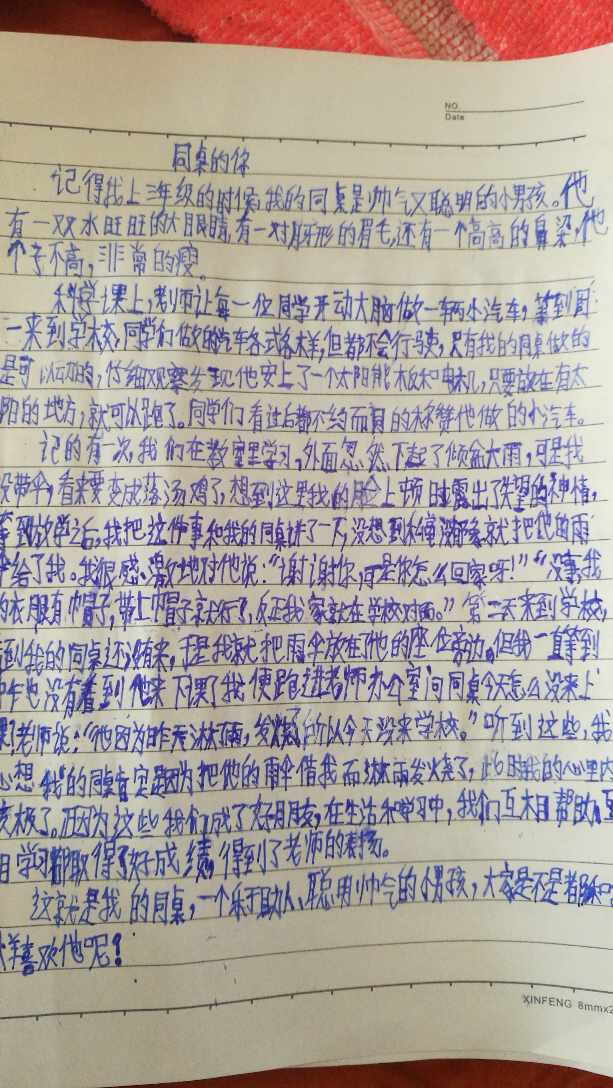 NO.
Date
同桌的你
记得我上三年级的时候,我的同桌是帅气又聪明的小男孩。他
有一双水旺旺的大眼睛,有一对月牙形的眉毛,还有一个高高的鼻梁,他
个子不高,非常的瘦。
科学课上,老师让每一位同学开动大脑做一辆小汽车,等到周
一来到学校,同学们做的汽车各式各样,但都不会行驶,只有我的同桌做的
是可以动的,仔细观察发现他安上了一个太阳能板和电机,只要放在有太
阳的地方,就可以跑了。同学们看过后都不约而同的称赞他做的小汽车。
记的有一次,我们在教室里学习,外面忽然下起了倾盆大雨,可是我
没带伞,看来要变成落汤鸡了,想到这里我的脸上顿时露出了失望的神情,
等到放学之后,我把这件事和我的同桌讲了一下,没想到他想都没想就把他的雨
伞给了我。我很感激地对他说:“谢谢你,可是你怎么回家呀!”“没事,我
的衣服有帽子,带上帽子就行了,反正我家就在学校对面。”第二天来到学校,
看到我的同桌还没有来,于是我就把雨伞放在他的座位旁边。但我一直等到
中午也没有看到他来下课了我便跑进老师办公室问同桌今天怎么没来上
课老师说:“他因为昨天淋了雨,发烧了所以今天没来学校。”听到这些,我
心想我的同桌肯定是因为把他的雨伞借我而淋雨发烧了,此时我的心里内
疚极了。因为这些我们成了好朋友,在生活和学习中,我们互相帮助,互
相学习都取得了好成绩,得到了老师的表扬。
这就是我的同桌,一个乐于助人、聪明帅气的小男孩,大家是不是都和
样喜欢他呢!
XINFENG 8mmx2